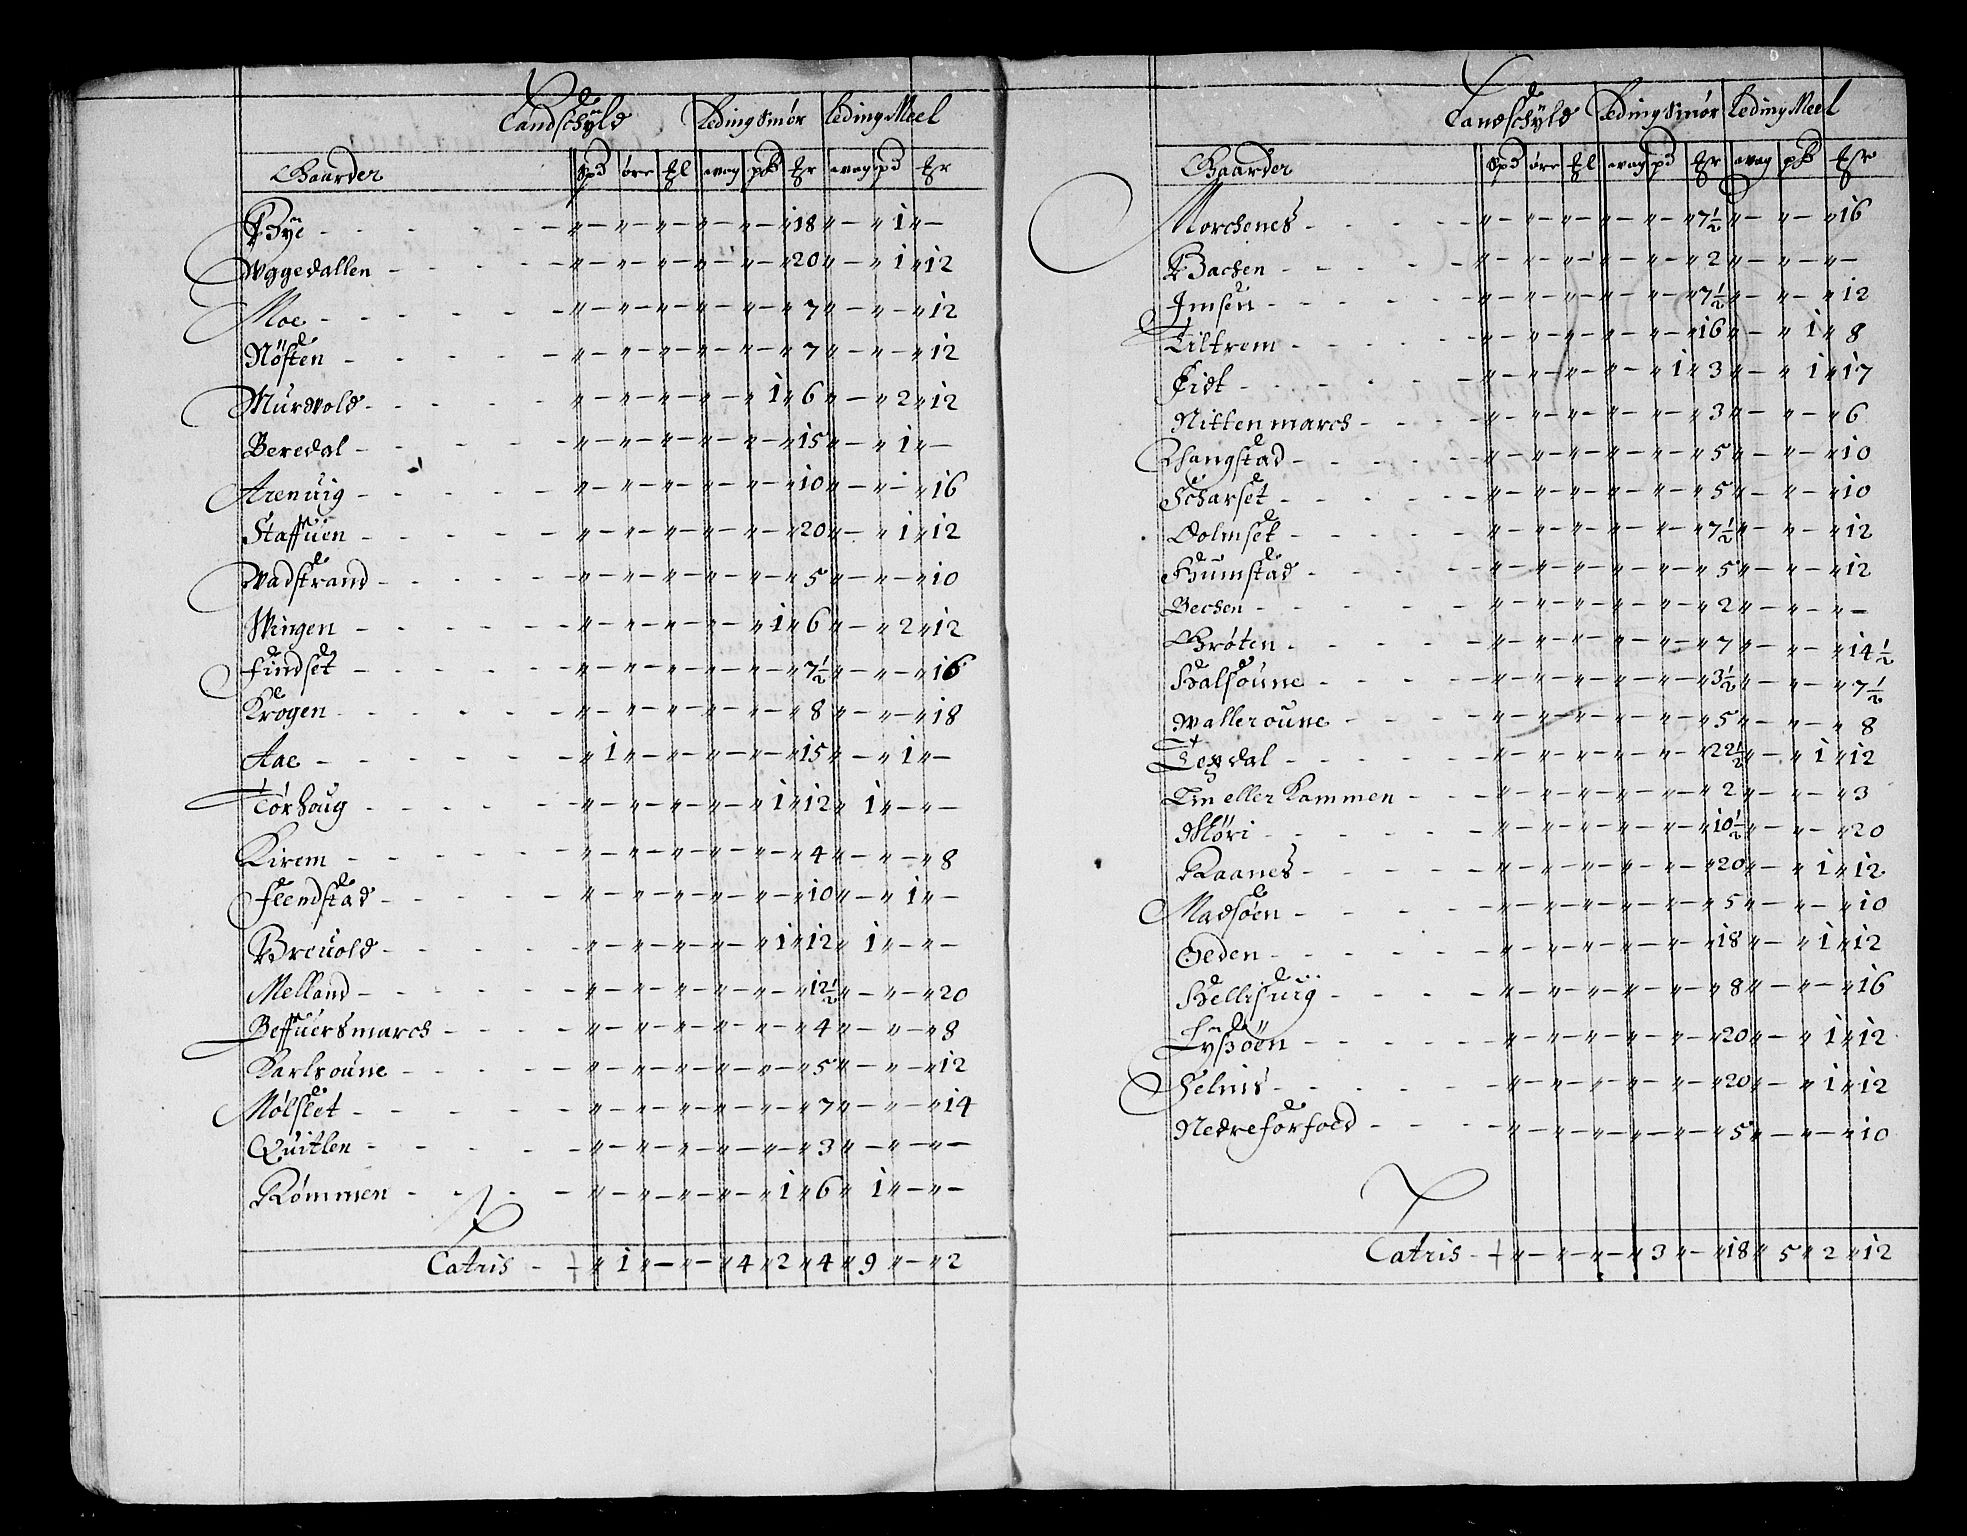 Landschÿld Leding Smør Leding Meel
Gaarder Spd øre ℔l wog pd ℔r wog pd ℔r
Bÿe - - - - - " - " - " - " - " - " 18 " - " 1 " -
Uggedallen - - - - " - " - " - " - " - " 20 " - " 1 " 12
Moe - - - - - " - " - " - " - " - " 7 " - " - " 12
Nösten - - - - " - " - " - " - " - " 7 " - " - " 12
Murvold - - - - " - " - " - " - " 1 " 6 " - " 2 " 12
Beredal - - - - " - " - " - " - " - " 15 " - " 1 " -
Arenuig - - - - " - " - " - " - " - " 10 " - " - " 16
Staffüen - - - - " - " - " - " - " - " 20 " - " 1 " 12
Wadstrand - - - - " - " - " - " - " - " 5 " - " - " 10
Wingen - - - - " - " - " - " - " 1 " 6 " - " 2 " 12
Findset - - - - " - " - " - " - " - " 7½ " - " - " 16
Krogen - - - - " - " - " - " - " - " 8 " - " - " 18
Aae - - - - - " 1 " - " - " - " - " 15 " - " 1 " -
Törhoug - - - - " - " - " - " - " 1 " 12 " 1 " - " -
Kirem - - - - " - " - " - " - " - " 4 " - " - " 8
Flendstad - - - - " - " - " - " - " - " 10 " - " 1 " -
Breuold - - - - " - " - " - " - " 1 " 12 " 1 " - " -
Melland - - - - " - " - " - " - " - " 12½ " - " - " 20
Beffuersmarch - - - " - " - " - " - " - " 4 " - " - " 8
Karlsoune - - - - " - " - " - " - " - " 5 " - " - " 12
Mølslet - - - - " - " - " - " - " - " 7 " - " - " 14
Quitlen - - - - " - " - " - " - " - " 3 " - " - " -
Rømmen - - - - " - " - " - " - " 1 " 6 " 1 " - " -
Latris - " 1 " - " - " 4 " 2 " 4 " 9 " - " 2
Landschÿld Leding Smør Leding Meel
Gaarder Spd øre ℔l wog pd ℔r wog pd ℔r
Morchenes - - - - " - " - " - " - " - " 7½ " - " - " 16
Bachen - - - - " - " - " - " - " - " 2 " - " - " -
Imsen - - - - " - " - " - " - " - " 7½ " - " - " 12
Tiltrem - - - - " - " - " - " - " - " 16 " - " 1 " 8
Eidt - - - - - " - " - " - " - " 1 " 3 " - " 1 " 17
Nittenmarch - - - " - " - " - " - " - " 3 " - " - " 6
Hangstad - - - - " - " - " - " - " - " 5 " - " - " 10
Scharset - - - - " - " - " - " - " - " 5 " - " - " 10
Dolmset - - - - " - " - " - " - " - " 7½ " - " - " 12
Humstad - - - - " - " - " - " - " - " 5 " - " - " 12
Bechen - - - - " - " - " - " - " - " 2 " - " - " -
Grøten - - - - " - " - " - " - " - " 7 " - " - " 14½
Halsoune - - - - " - " - " - " - " - " 3½ " - " - " 7½
Walleroune - - - " - " - " - " - " - " 5 " - " - " 8
Texdal - - - - " - " - " - " - " - " 22½ " - " 1 " 12
Tin eller Kammen - - " - " - " - " - " - " 2 " - " - " 3
Möri - - - - " - " - " - " - " - " 10½ " - " - " 20
Raanes - - - - " - " - " - " - " - " 20 " - " 1 " 12
Madsöen - - - - " - " - " - " - " - " 5 " - " - " 10
Oeden - - - - " - " - " - " - " - " 18 " - " 1 " 12
Hellisuig - - - - " - " - " - " - " - " 8 " - " - " 16
Lÿsöen - - - - " - " - " - " - " - " 20 " - " 1 " 12
Selnis - - - - " - " - " - " - " - " 20 " - " 1 " 12
Nedreforfoed - - - " - " - " - " - " - " 5 " - " - " 10
Latris - " - " - " - " 3 " - " 18 " 5 " 2 " 12